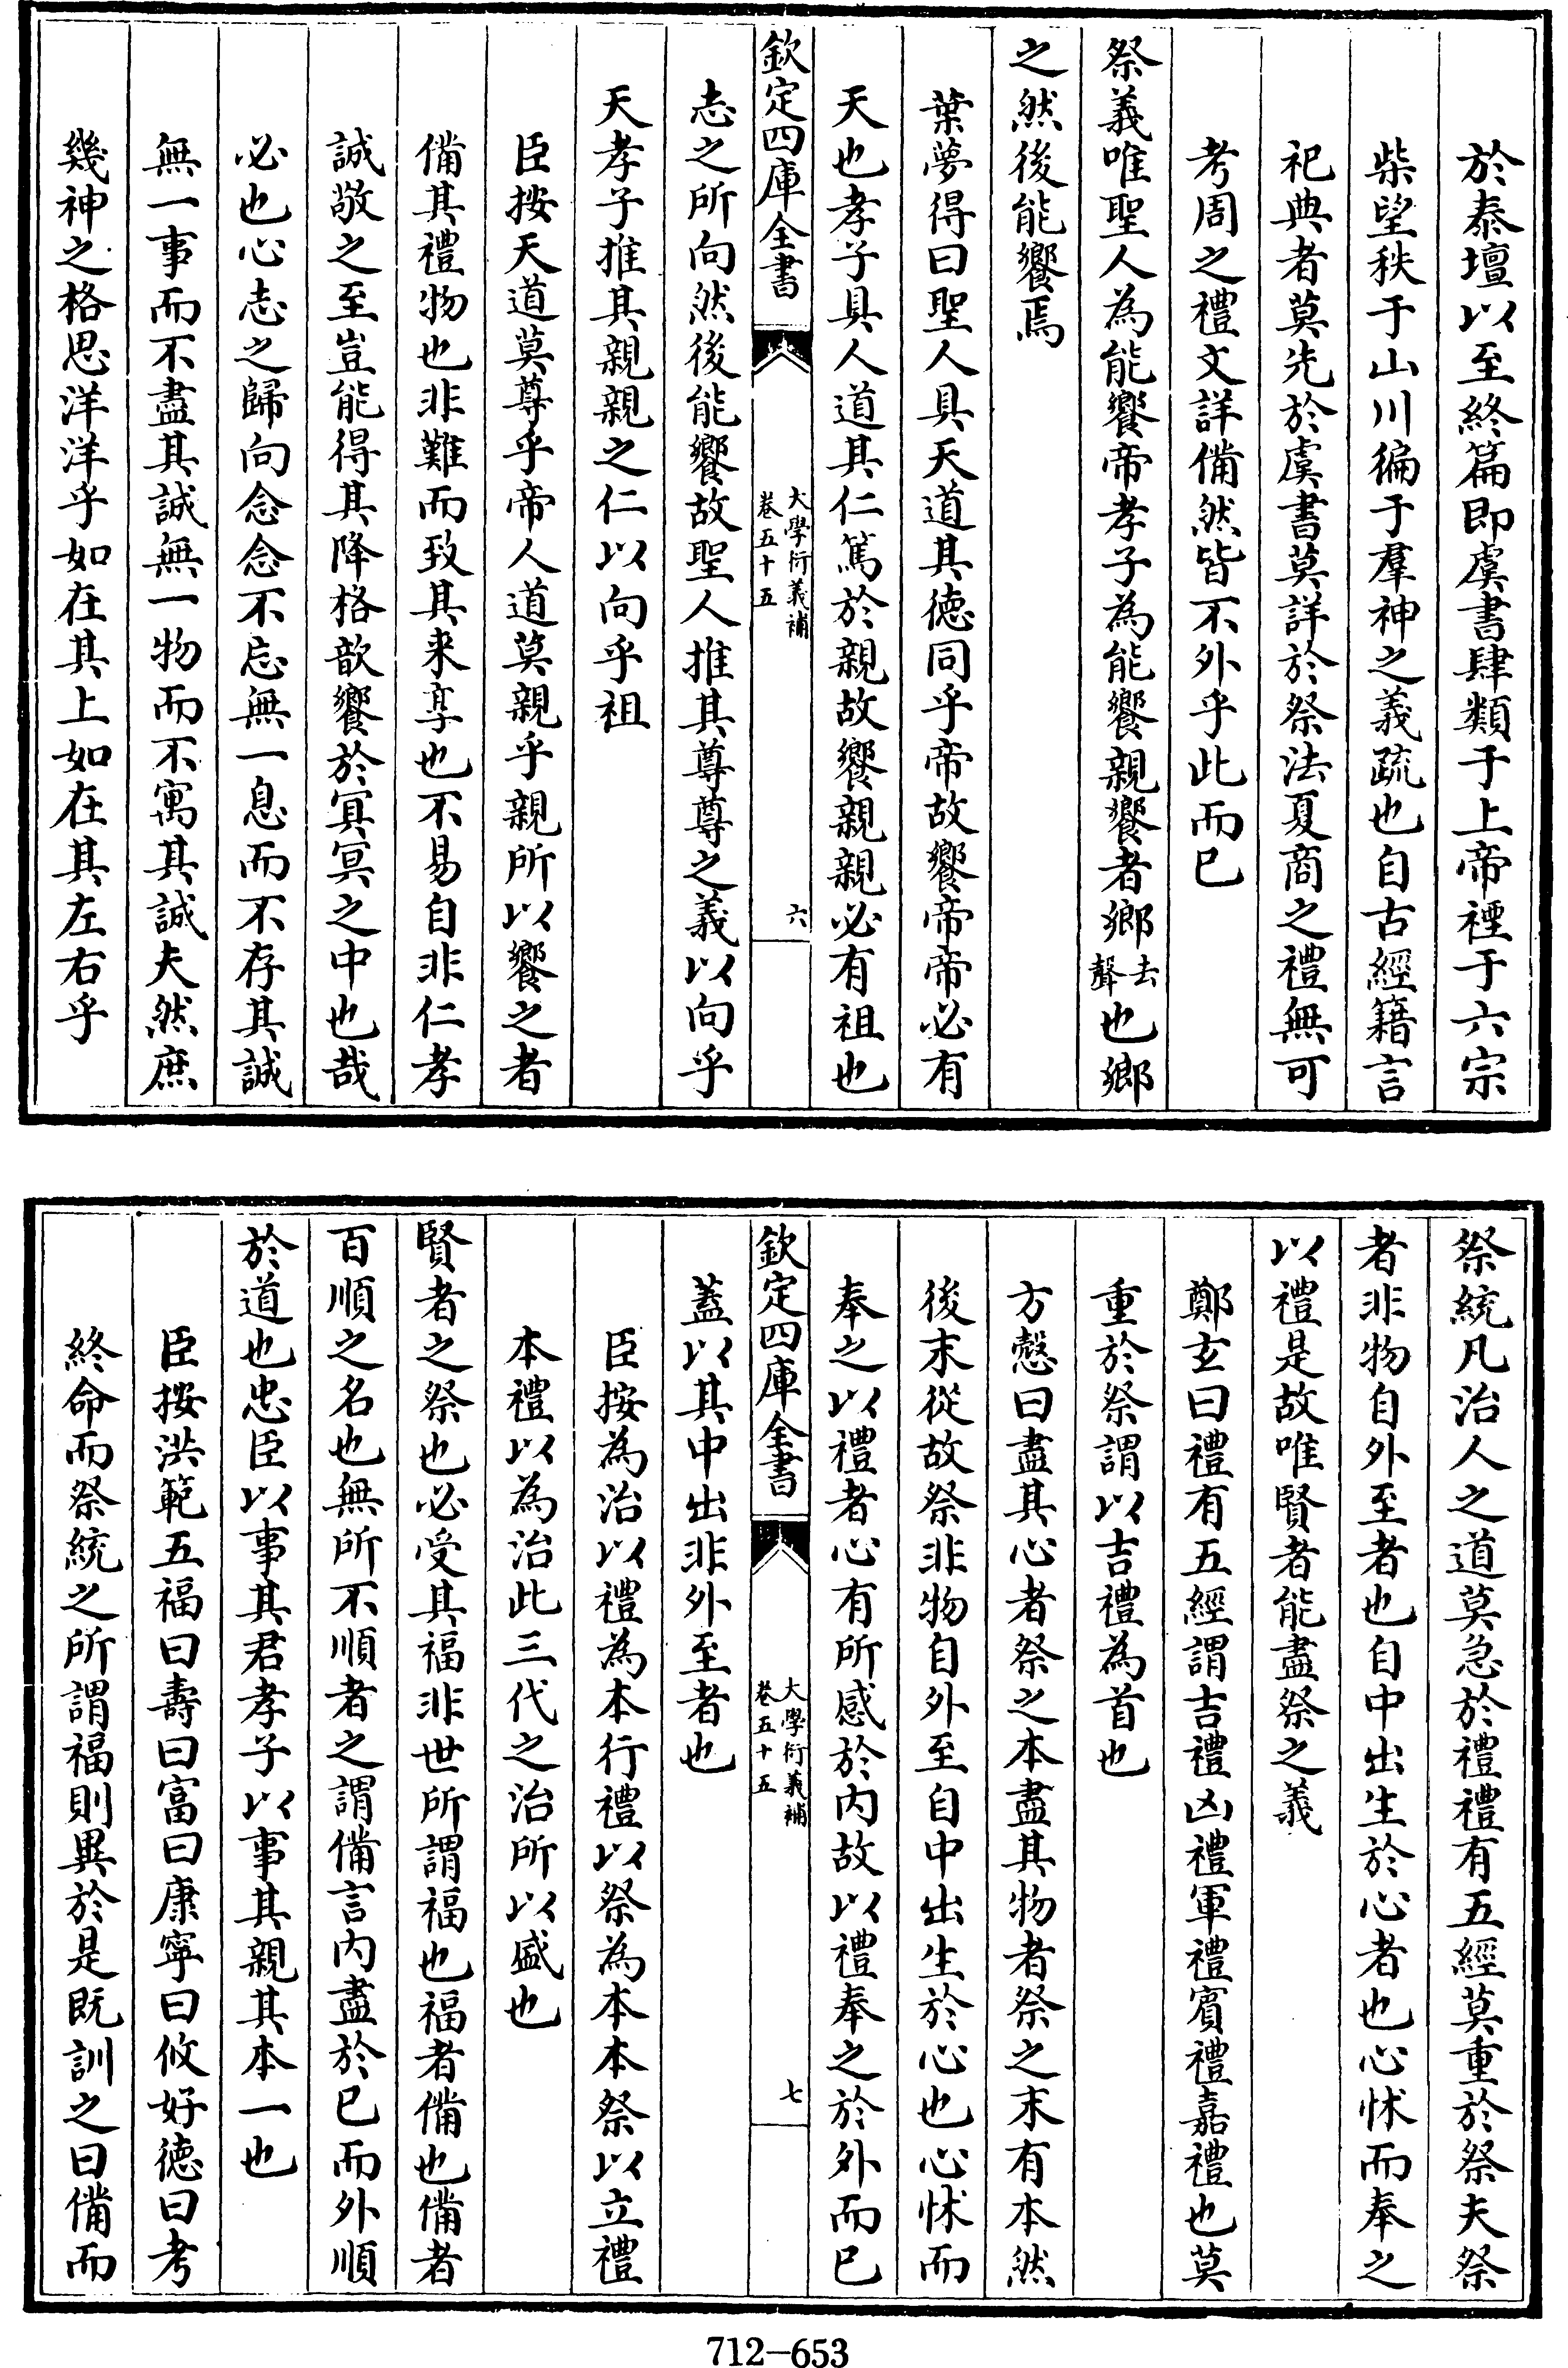 於泰壇以至終篇即虞書肆類于上帝禋于六宗
柴望秩于山川徧于羣神之義疏也自古經籍言
祀典者莫先於虞書莫詳於祭法夏商之禮無可
考周之禮文詳備然皆不外乎此而已
祭義唯聖人為能饗帝孝子為能饗親饗者鄉去聲也鄉
之然後能饗焉
葉夢得曰聖人具天道其徳同乎帝故饗帝帝必有
天也孝子具人道其仁篤於親故饗親親必有祖也
欽定四庫全書
大學衍義補
卷五十五
六
志之所向然後能饗故聖人推其尊尊之義以向乎
天孝子推其親親之仁以向乎祖
臣按天道莫尊乎帝人道莫親乎親所以饗之者
備其禮物也非難而致其来享也不易自非仁孝
誠敬之至豈能得其降格歆饗於冥冥之中也哉
必也心志之歸向念念不忘無一息而不存其誠
無一事而不盡其誠無一物而不寓其誠夫然庶
幾神之格思洋洋乎如在其上如在其左右乎
祭統凡治人之道莫急於禮禮有五經莫重於祭夫祭
者非物自外至者也自中出生於心者也心怵而奉之
以禮是故唯賢者能盡祭之義
鄭玄曰禮有五經謂吉禮凶禮軍禮賓禮嘉禮也莫
重於祭謂以吉禮為首也
方慤曰盡其心者祭之本盡其物者祭之末有本然
後末從故祭非物自外至自中出生於心也心怵而
奉之以禮者心有所感於内故以禮奉之於外而已
欽定四庫全書
大學衍義補
卷五十五
七
蓋以其中出非外至者也
臣按為治以禮為本行禮以祭為本本祭以立禮
本禮以為治此三代之治所以盛也
賢者之祭也必受其福非世所謂福也福者備也備者
百順之名也無所不順者之謂備言内盡於已而外順
於道也忠臣以事其君孝子以事其親其本一也
臣按洪範五福曰壽曰富曰康寧曰攸好徳曰考
終命而祭統之所謂福則異於是既訓之曰備而
712-653